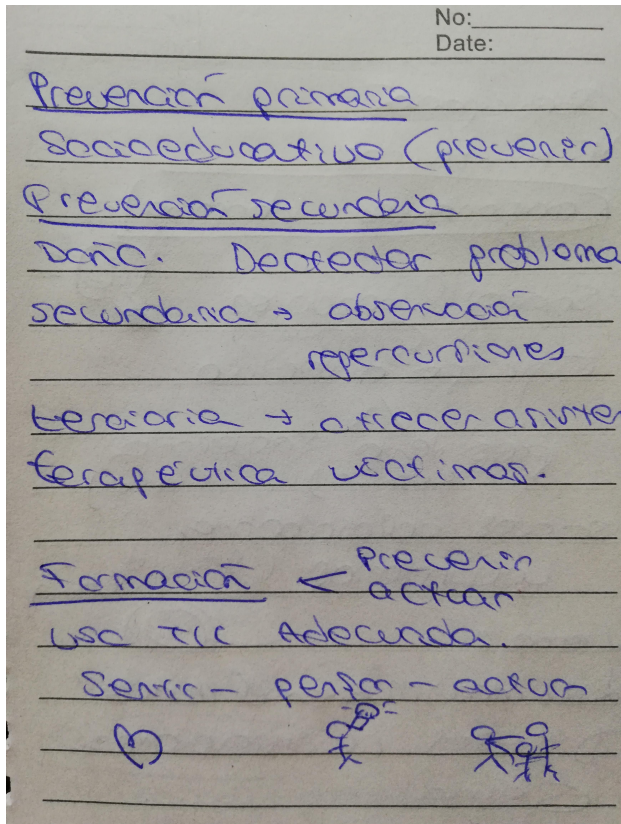 No:
Date:
Prevención primaria
Socioeducativo (prevenir)
Prevención secundaria
Daño. Detectar problema
secundaria → observación
repercusiones
terciaria → ofrecer asisten
terapéutica víctimas.
Formación < Prevenir
actuar
uso TIC Adecuada.
Sentir - pensar - actuar